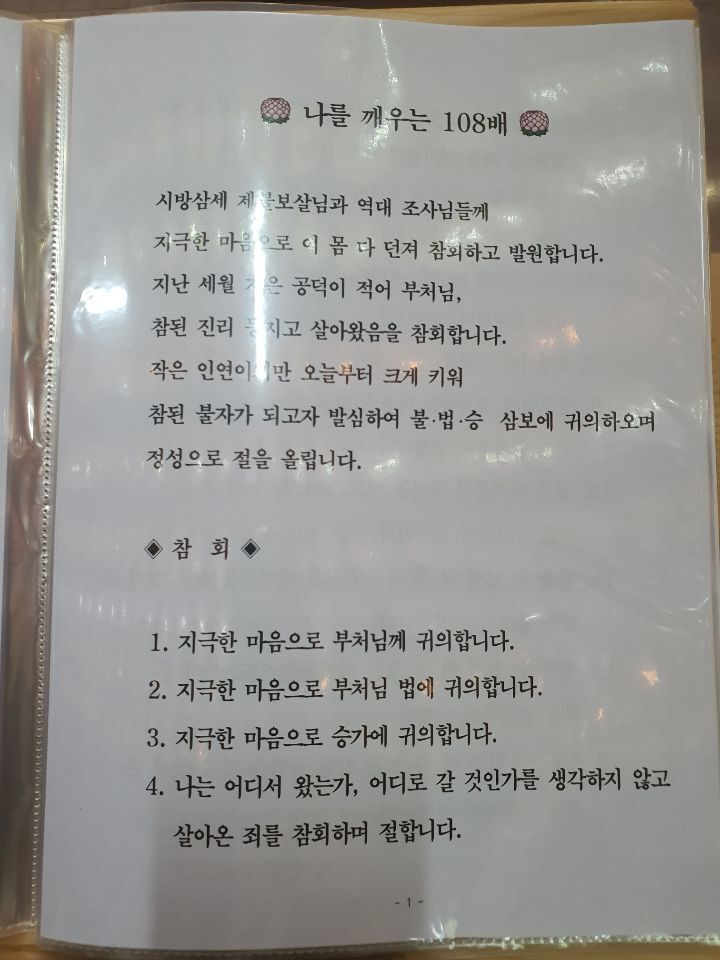 나를 깨우는 108배
시방삼세 제불보살님과 역대 조사님들께
지극한 마음으로 이 몸 다 던져 참회하고 발원합니다.
지난 세월 공덕이 적어 부처님,
참된 진리 등지고 살아왔음을 참회합니다.
작은 인연이지만 오늘부터 크게 키워
참된 불자가 되고자 발심하여 불·법·승 삼보에 귀의하오며
정성으로 절을 올립니다.
◈ 참 회 ◈
1. 지극한 마음으로 부처님께 귀의합니다.
2. 지극한 마음으로 부처님 법에 귀의합니다.
3. 지극한 마음으로 승가에 귀의합니다.
4. 나는 어디서 왔는가, 어디로 갈 것인가를 생각하지 않고
살아온 죄를 참회하며 절합니다.
- 1 -